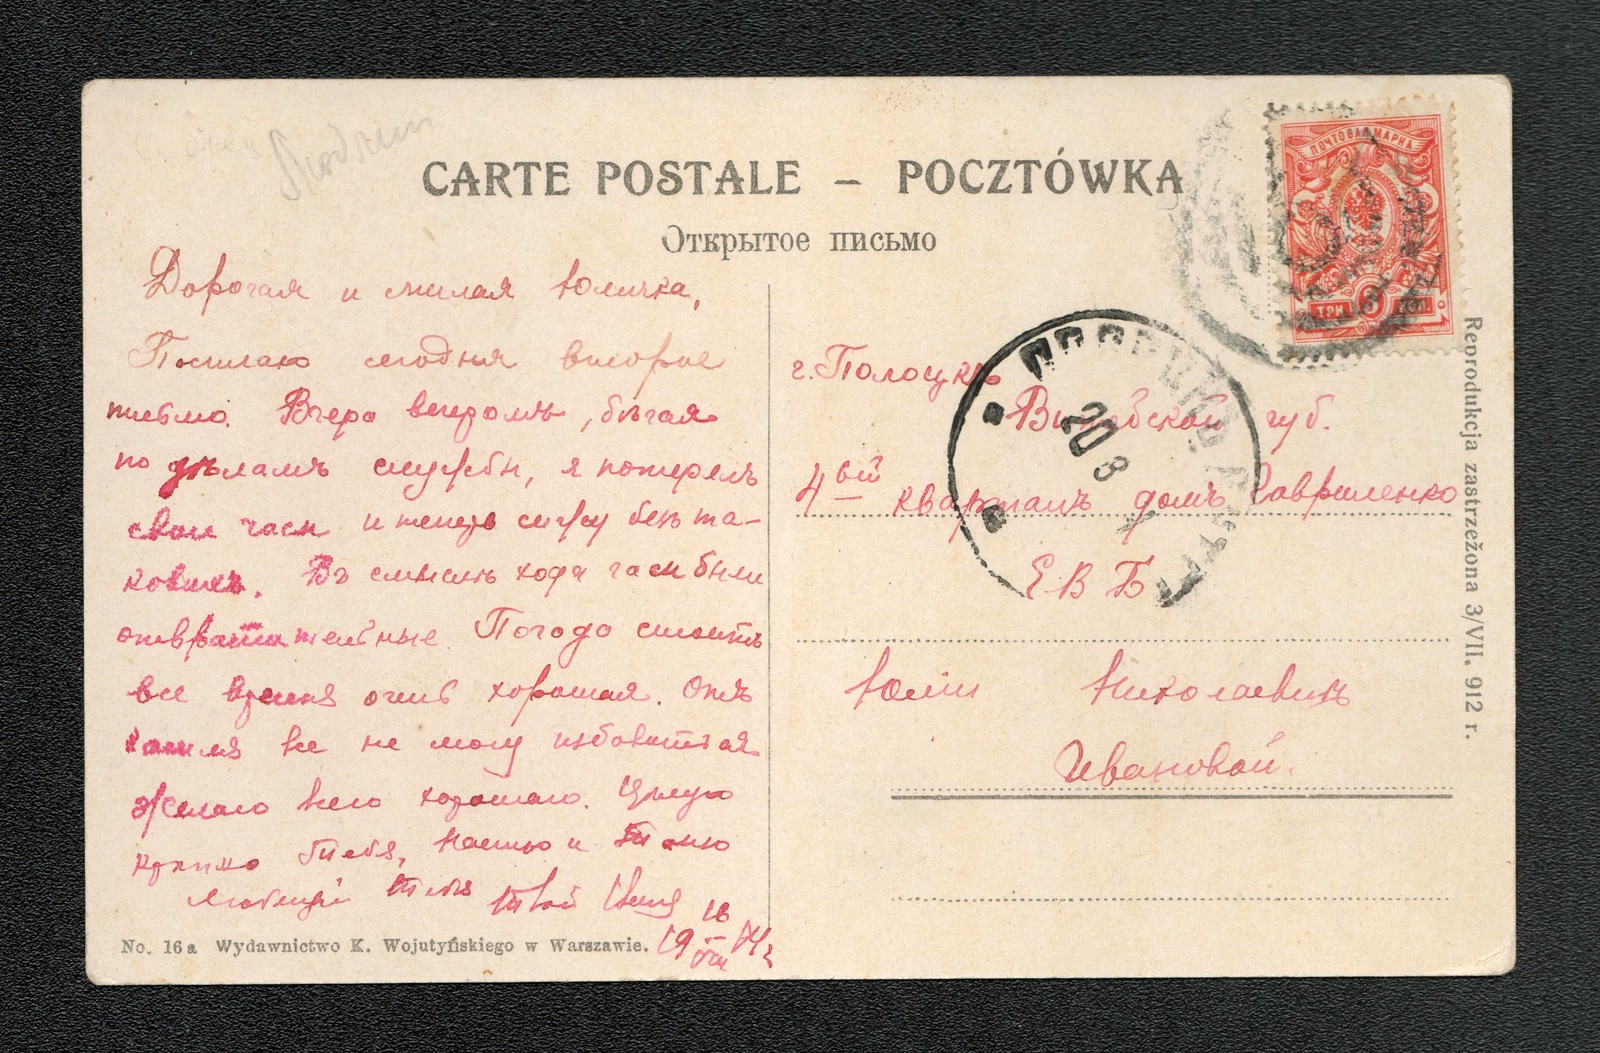 CARTE POSTALE – POCZTÓWKA
Открытое письмо
Дорогая и милая Юличка,
Посылаю сегодня второе
письмо. Вчера вечеромъ, бѣгая
по дѣламъ службы, я потерялъ
свои часы и теперь сижу безъ та-
ковыхъ. Въ смыслѣ хода часы были
отвратительные. Погода стоитъ
все время очень хорошая. Отъ
кашля все не могу избавиться
Желаю всего хорошаго. Цѣлую
крѣпко Тебя, Настю и Таню
Любящій Тебя Твой
19 18/VIII 14 г
No. 16 a Wydawnictwo K. Wojutyńskiego w Warszawie.
ПОЧТОВАЯ МАРКА
ТРИ 3 КОП.
20 8
г. Полоцкъ
Витебской губ.
4ый кварталъ домъ Гавриленко
Е В Б
Юліи Николаевнѣ
Ивановой.
Reprodukcja zastrzeżona 3/VII. 912 r.